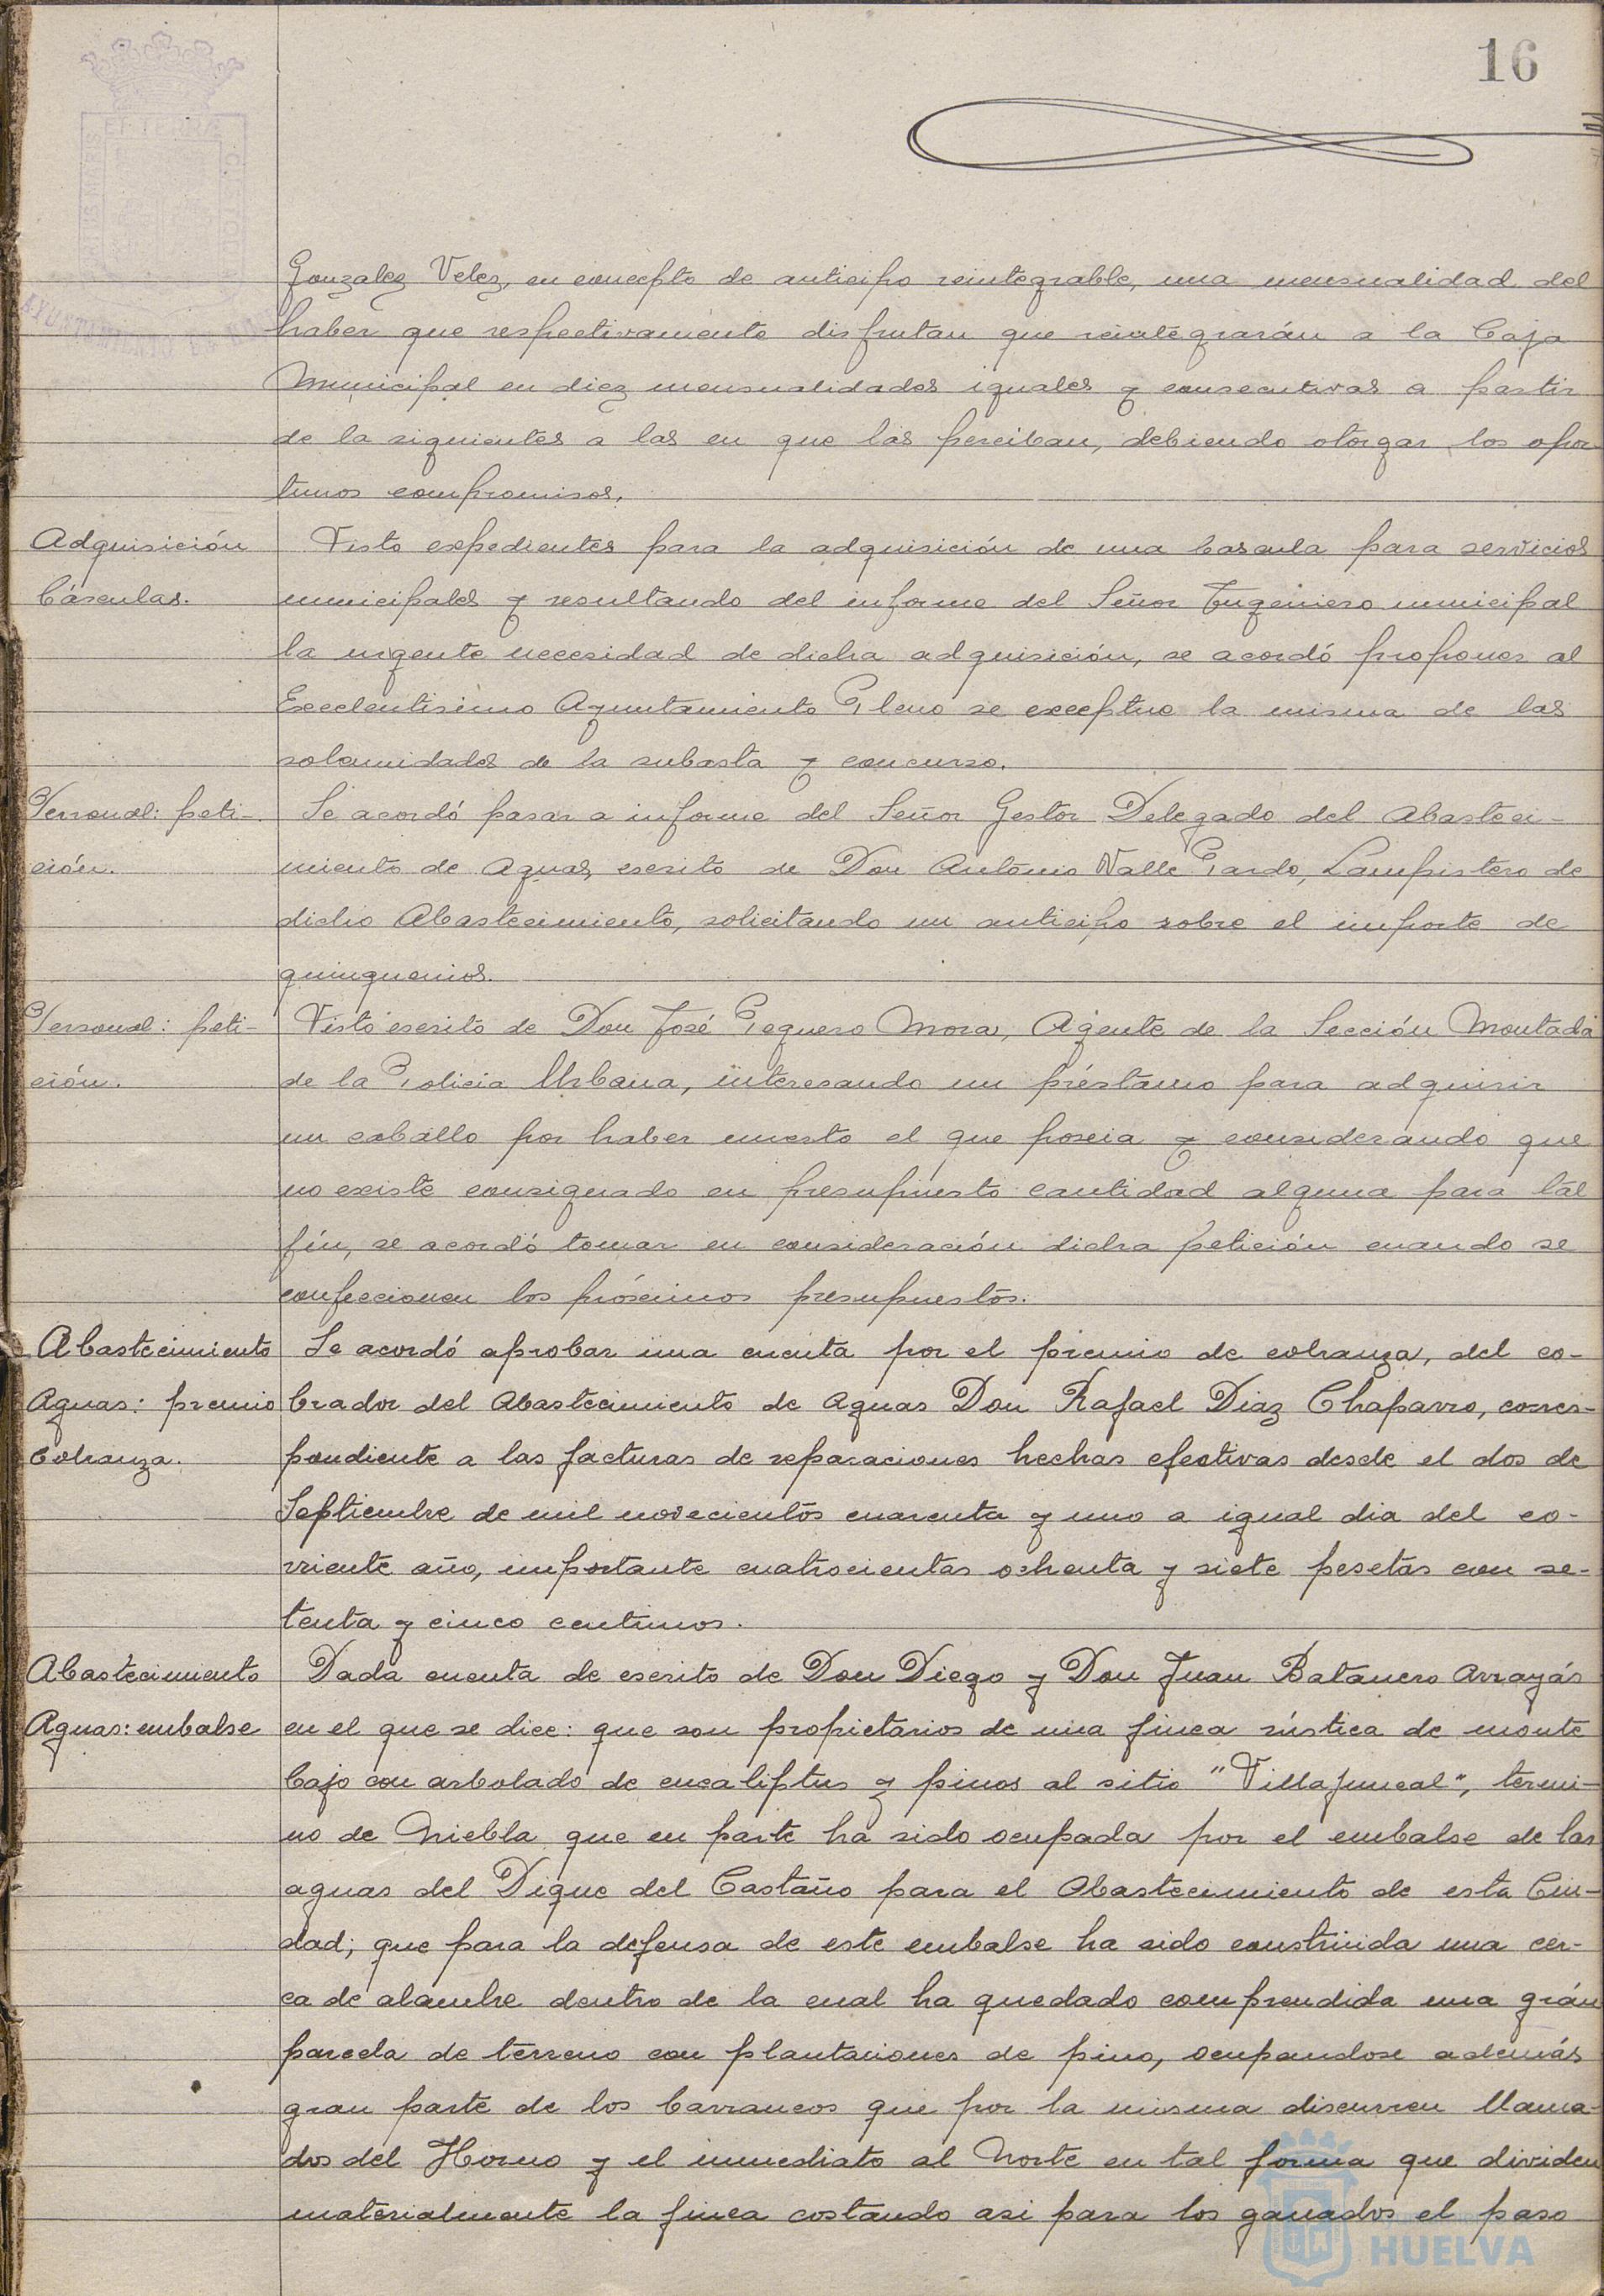 16
Gonzalez Velez, en concepto de anticipo reintegrable, una mensualidad del
haber que respectivamente disfrutan que reintegrarán a la Caja
Municipal en diez mensualidades iguales y consecutivas a partir
de la siguientes a las en que las perciban, debiendo otorgar los opor-
tunos compromisos.
Adquisición
básculas.
Visto expedientes para la adquisición de una bascula para servicios
municipales y resultando del informe del Señor Ingeniero municipal
la urgente necesidad de dicha adquisición, se acordó proponer al
Excelentisimo Ayuntamiento Pleno se exceptue la misma de las
solemnidades de la subasta y concurso.
Personal: peti-
ción.
Se acordó pasar a informe del Señor Gestor Delegado del Abasteci-
miento de Aguas, escrito de Don Antonio Valle Pardo, Lampistero de
dicho Abastecimiento, solicitando un anticipo sobre el importe de
quinquenios.
Personal: peti-
ción.
Visto escrito de Don José Peguero Mora, Agente de la Sección Montada
de la Policia Urbana, interesando un préstamo para adquirir
un caballo por haber muerto el que poseia y considerando que
no existe consignado en presupuesto cantidad alguna para tal
fín, se acordó tomar en consideración dicha petición cuando se
confeccionen los próximos presupuestos.
Abastecimiento
Aguas: premio
cobranza.
Se acordó aprobar una cuenta por el premio de cobranza, del co-
brador del Abastecimiento de Aguas Don Rafael Diaz Chaparro, corres-
pondiente a las facturas de reparaciones hechas efectivas desde el dos de
Septiembre de mil novecientos cuarenta y uno a igual dia del co-
rriente año, importante cuatrocientas ochenta y siete pesetas con se-
tenta y cinco centimos.
Abastecimiento
Aguas: embalse
Dada cuenta de escrito de Don Diego y Don Juan Batanero Arrayás
en el que se dice: que son propietarios de una finca rústica de monte
bajo con arbolado de eucaliptus y pinos al sitio "Villajuncal", termi-
no de Niebla que en parte ha sido ocupada por el embalse de las
aguas del Dique del Castaño para el Abastecimiento de esta Ciu-
dad; que para la defensa de este embalse ha sido construida una cer-
ca de alambre dentro de la cual ha quedado comprendida una grán
parcela de terreno con plantaciones de pino, ocupandose además
gran parte de los barrancos que por la misma discurren llama-
dos del Horno y el inmediato al Norte en tal forma que dividen
materialmente la finca costando asi para los ganados el paso
HUELVA